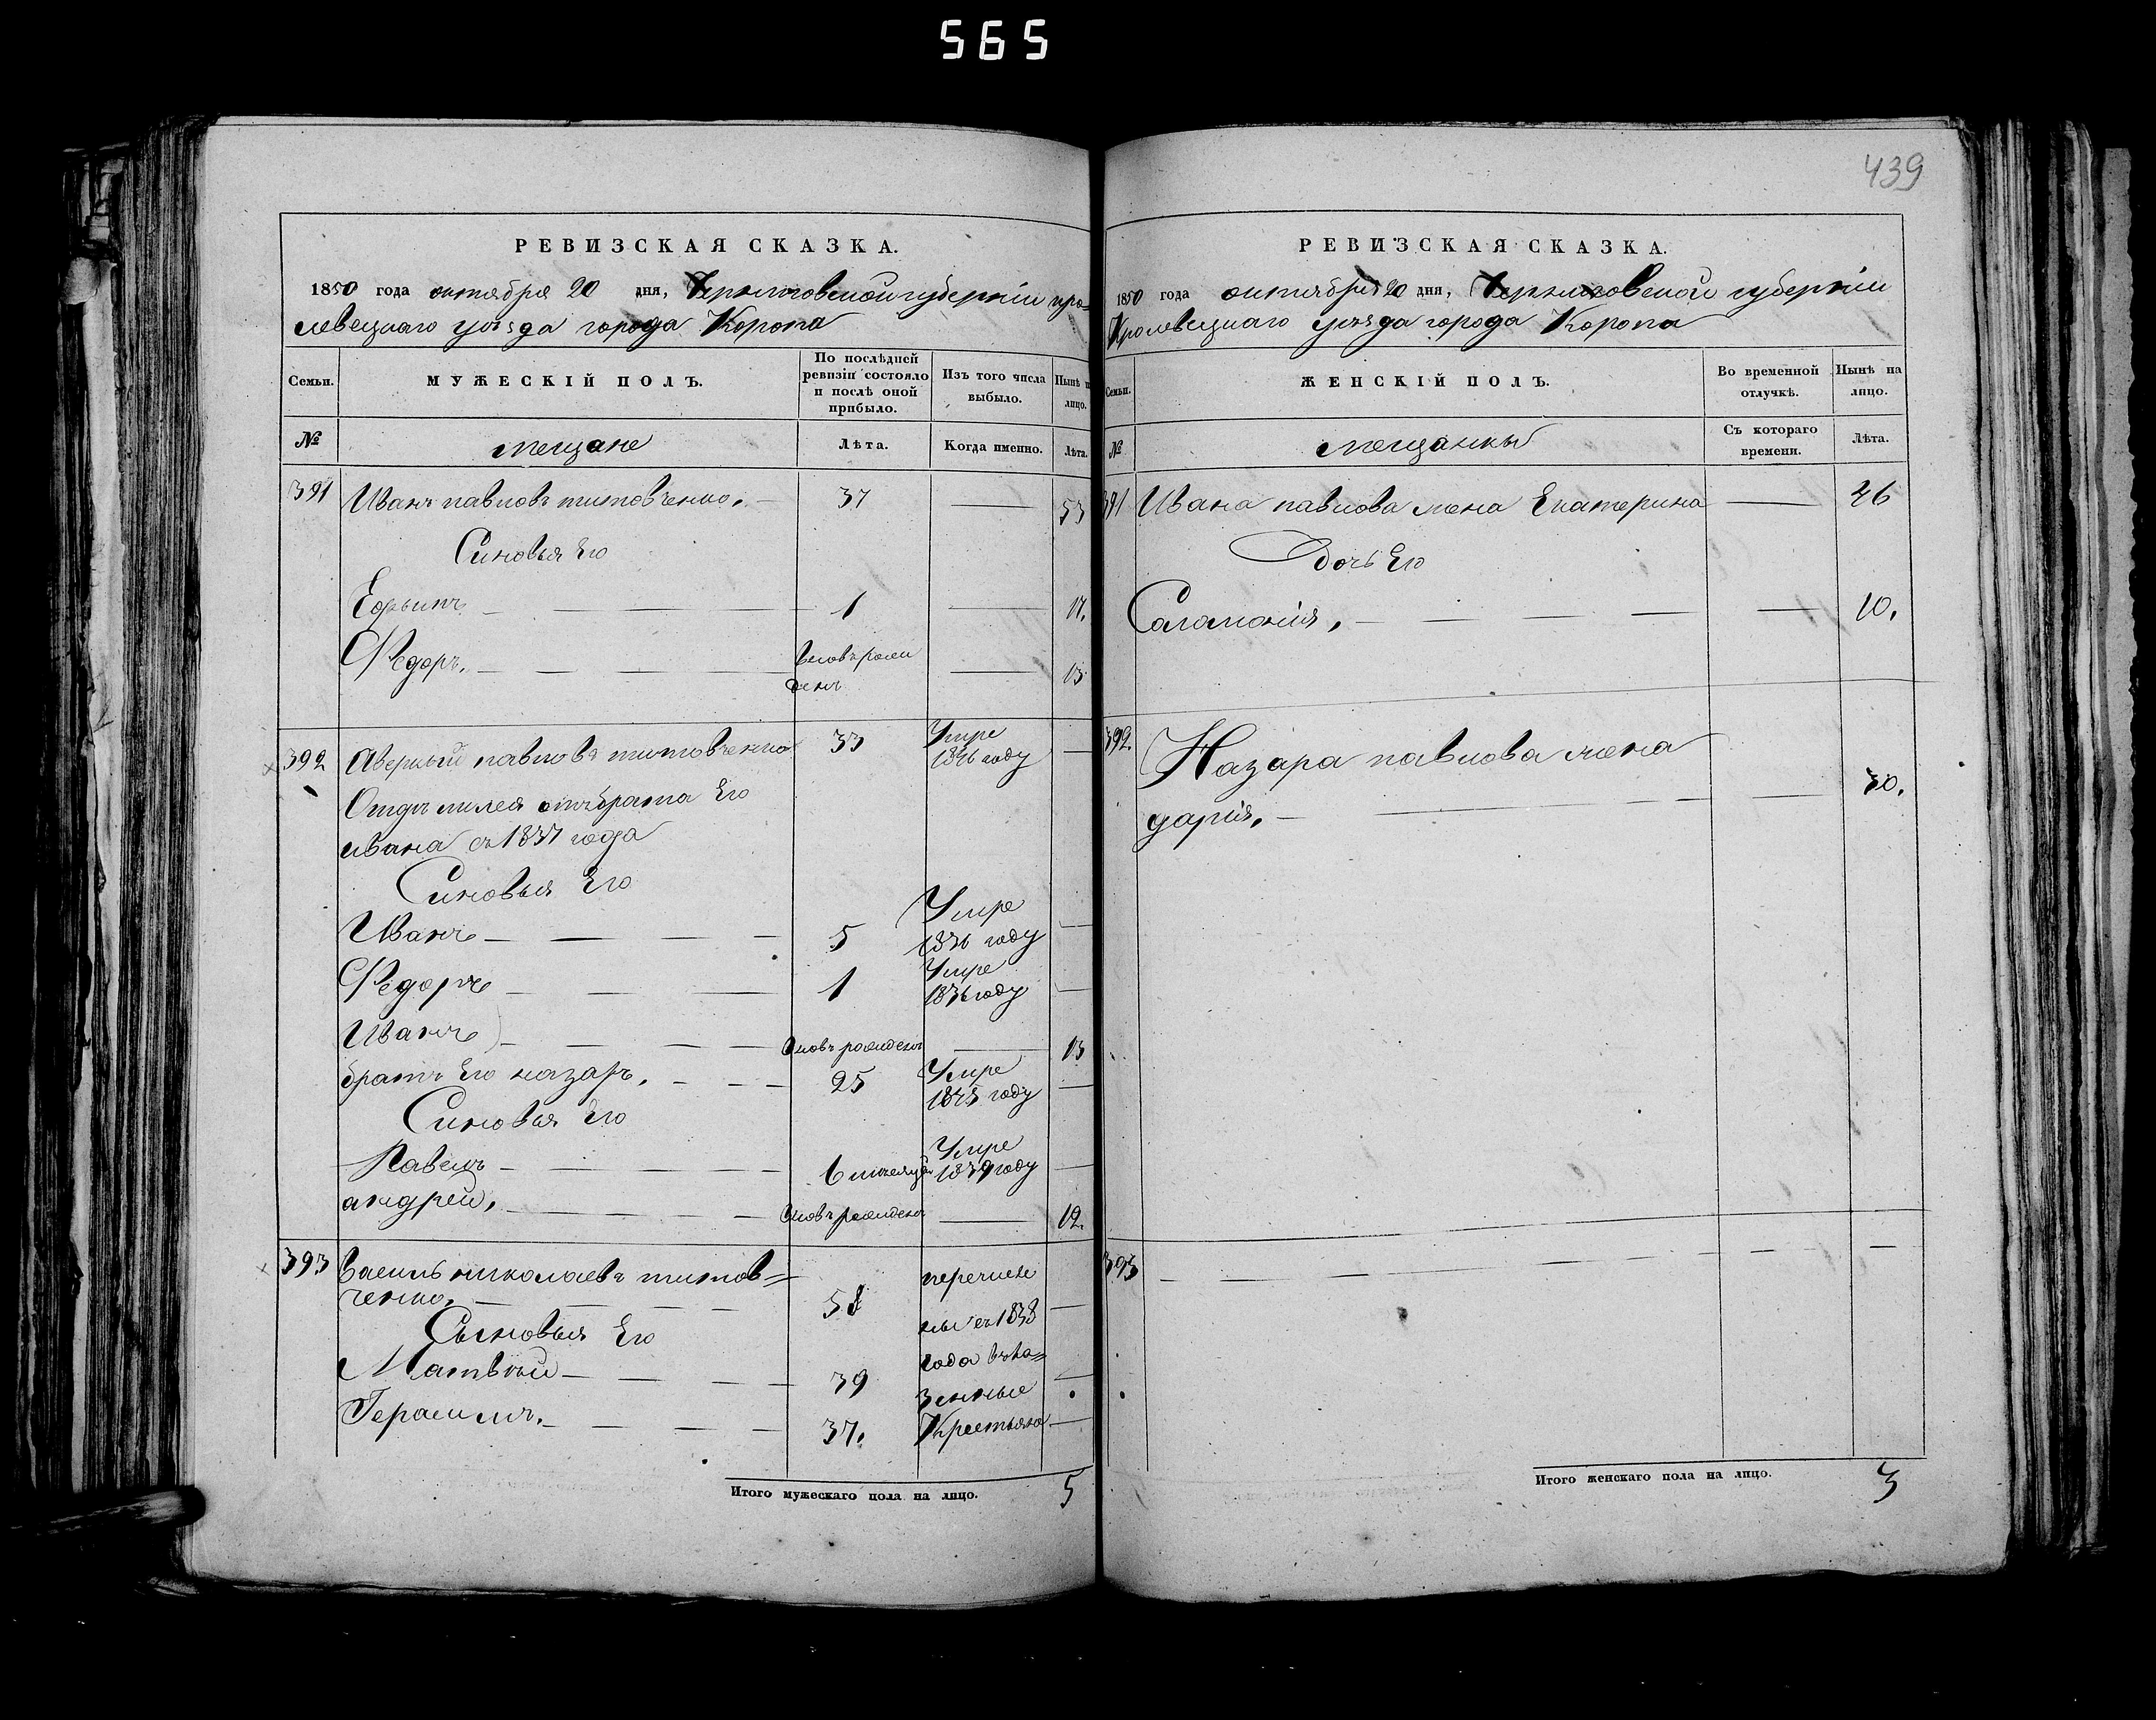 565
439
РЕВИЗСКАЯ СКАЗКА.
1850 года октября 20 дня, Черниговской губерніи кро-
левецкаго уѣзда города Коропа
Семьи.
МУЖЕСКІЙ ПОЛЪ.
По послѣдней ревизіи состояло и послѣ оной прибыло.
Изъ того числа выбыло.
Нынѣ на лицо.
№
мещане
Лѣта.
Когда именно.
Лѣта.
391 Иванъ павловъ титовченко. — 37 — 53
Синовья Его
— 1 — 17.
Федоръ. — вновь рож 13
денъ
392 Аверкий павловъ титовченко 33 Умре —
1846 году
Отделился отъ брата Его
ивана съ 1837 года
Синовья Его
Иванъ — 5 Умре —
1836 году
Федоръ — 1 Умре —
1836 году
Иванъ — вновь рожденъ — 13
братъ Его назаръ. — 25 Умре —
году
Синовья Его
Павелъ — 6 месяцовъ Умре —
1839 году
андрей. — вновь рожденъ — 12.
393 василь николаевъ титов= перечисле
ченко. — 58 —
ны съ 1838
Сыновья Его
года в ка=
Матвей — 39 —
зенные
Герасимъ. — 37. Крестьяне —
Итого мужескаго пола на лицо. 5
РЕВИЗСКАЯ СКАЗКА.
1850 года октября 20 дня, Черниговской губерніи
Кролевецкаго уѣзда города Коропа
Семьи.
ЖЕНСКІЙ ПОЛЪ.
Во временной отлучкѣ.
Нынѣ на лицо.
№
мещанки
Съ котораго времени.
Лѣта.
391 Ивана павлова жена Екатерина — 46
Дочь Его
Саламонія, — — 10.
392. Назара павлова жена
дарія. — — 30.
393 — — —
Итого женскаго пола на лицо. 3